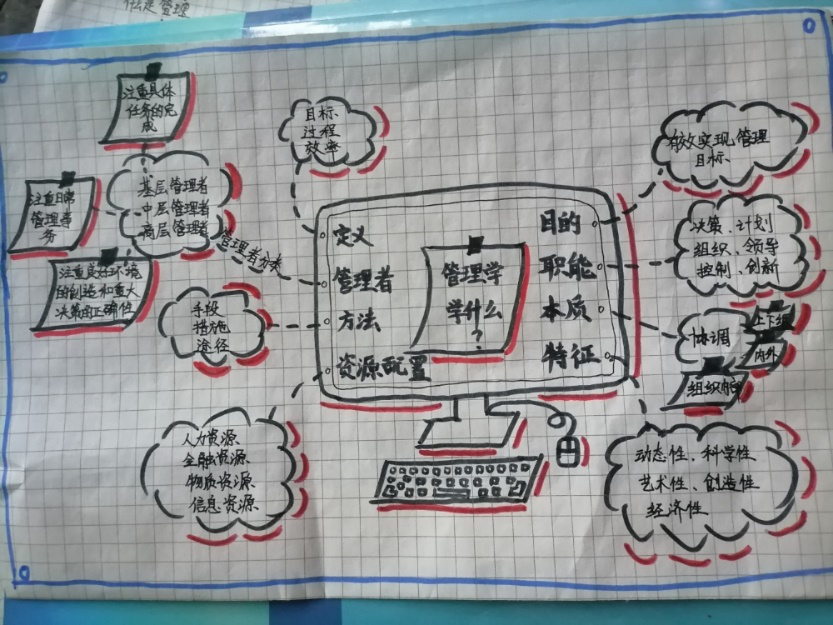 什么是管理
注重具体
任务的完
成
目标、
过程
效率
有效实现管理
目标、
基层管理者
中层管理者
高层管理者
注重日常
管理事
务
管理者分类
注重良好环境
的创造和重大
决策的正确性
定义
管理者
方法
资源配置
管理学
学什么
?
目的
职能
本质
特征
决策、计划
组织、领导
控制、创新
手段
措施
途径
协调
上下级
内外
人力资源、
金融资源、
物质资源、
信息资源、
动态性、科学性、
艺术性、创造性
经济性